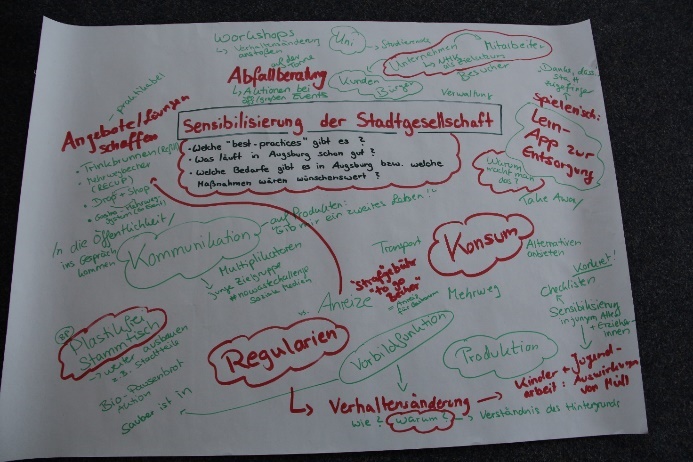 Workshops
↳ Verhaltensänderung
anstoßen
Uni
→ Studierende
Unternehmen
Mitarbeiter
Besucher
Kunden
Bürger
Verwaltung
Abfallberatung
↳ Aktionen bei
Events
praktikabel
Angebote/Lösungen
schaffen
• Trinkbrunnen (Refill)
• Mehrwegbecher
(RECUP)
• Drop + Shop
Sensibilisierung der Stadtgesellschaft
• Welche "best-practices" gibt es?
• Was läuft in Augsburg schon gut?
• Welche Bedarfe gibt es in Augsburg bzw. welche
Maßnahmen wären wünschenswert?
Spielerisch:
Lein-
App zur
Entsorgung
Warum
macht man
das?
Take Away
In die Öffentlichkeit/
ins Gespräch
kommen
Kommunikation
auf Produkten:
"Gib mir ein zweites Leben!"
→ Multiplikatoren
junge Zielgruppe
#nowastechallenge
Soziale Medien
Transport
Konsum
Alternativen
anbieten
"Strafgebühr
"to go
Becher"
Anreize
Mehrweg
Konkret!
Checklisten
Sensibilisierung
in jungem Alter
+ Erzieher-
innen
Plastikfrei
Stammtisch
→ weiter ausbauen
z.B. Stadtteile
Bio-Pausenbrot
Aktion
Sauber ist in
Regularien
Vorbildfunktion
Produktion
Kinder + Jugend-
arbeit: Auswirkungen
von Müll
↳ Verhaltensänderung
wie? Warum? → Verständnis des Hintergrunds